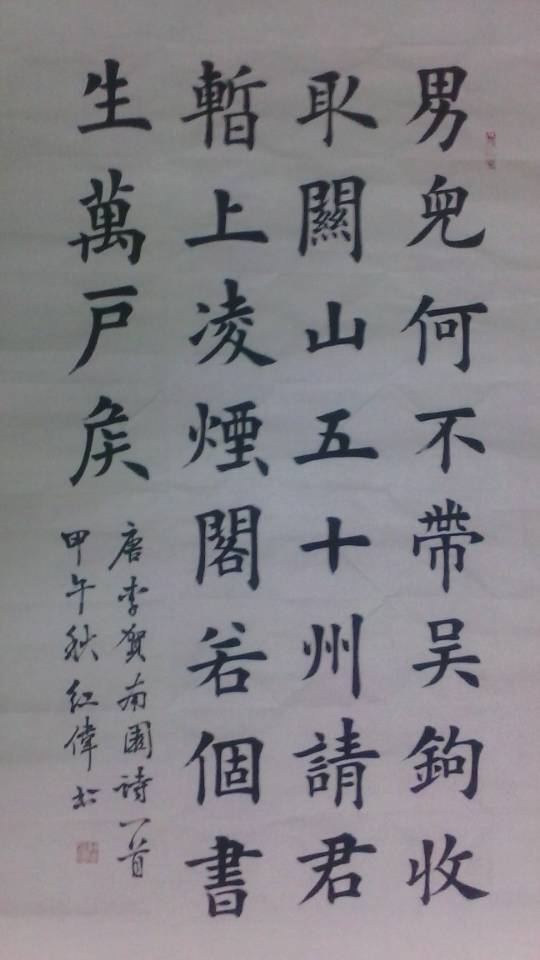 男兒何不帶吴鉤收
取關山五十州請君
暫上凌煙閣若個書
生萬户侯
唐李賀南園詩一首
甲午秋紅偉於